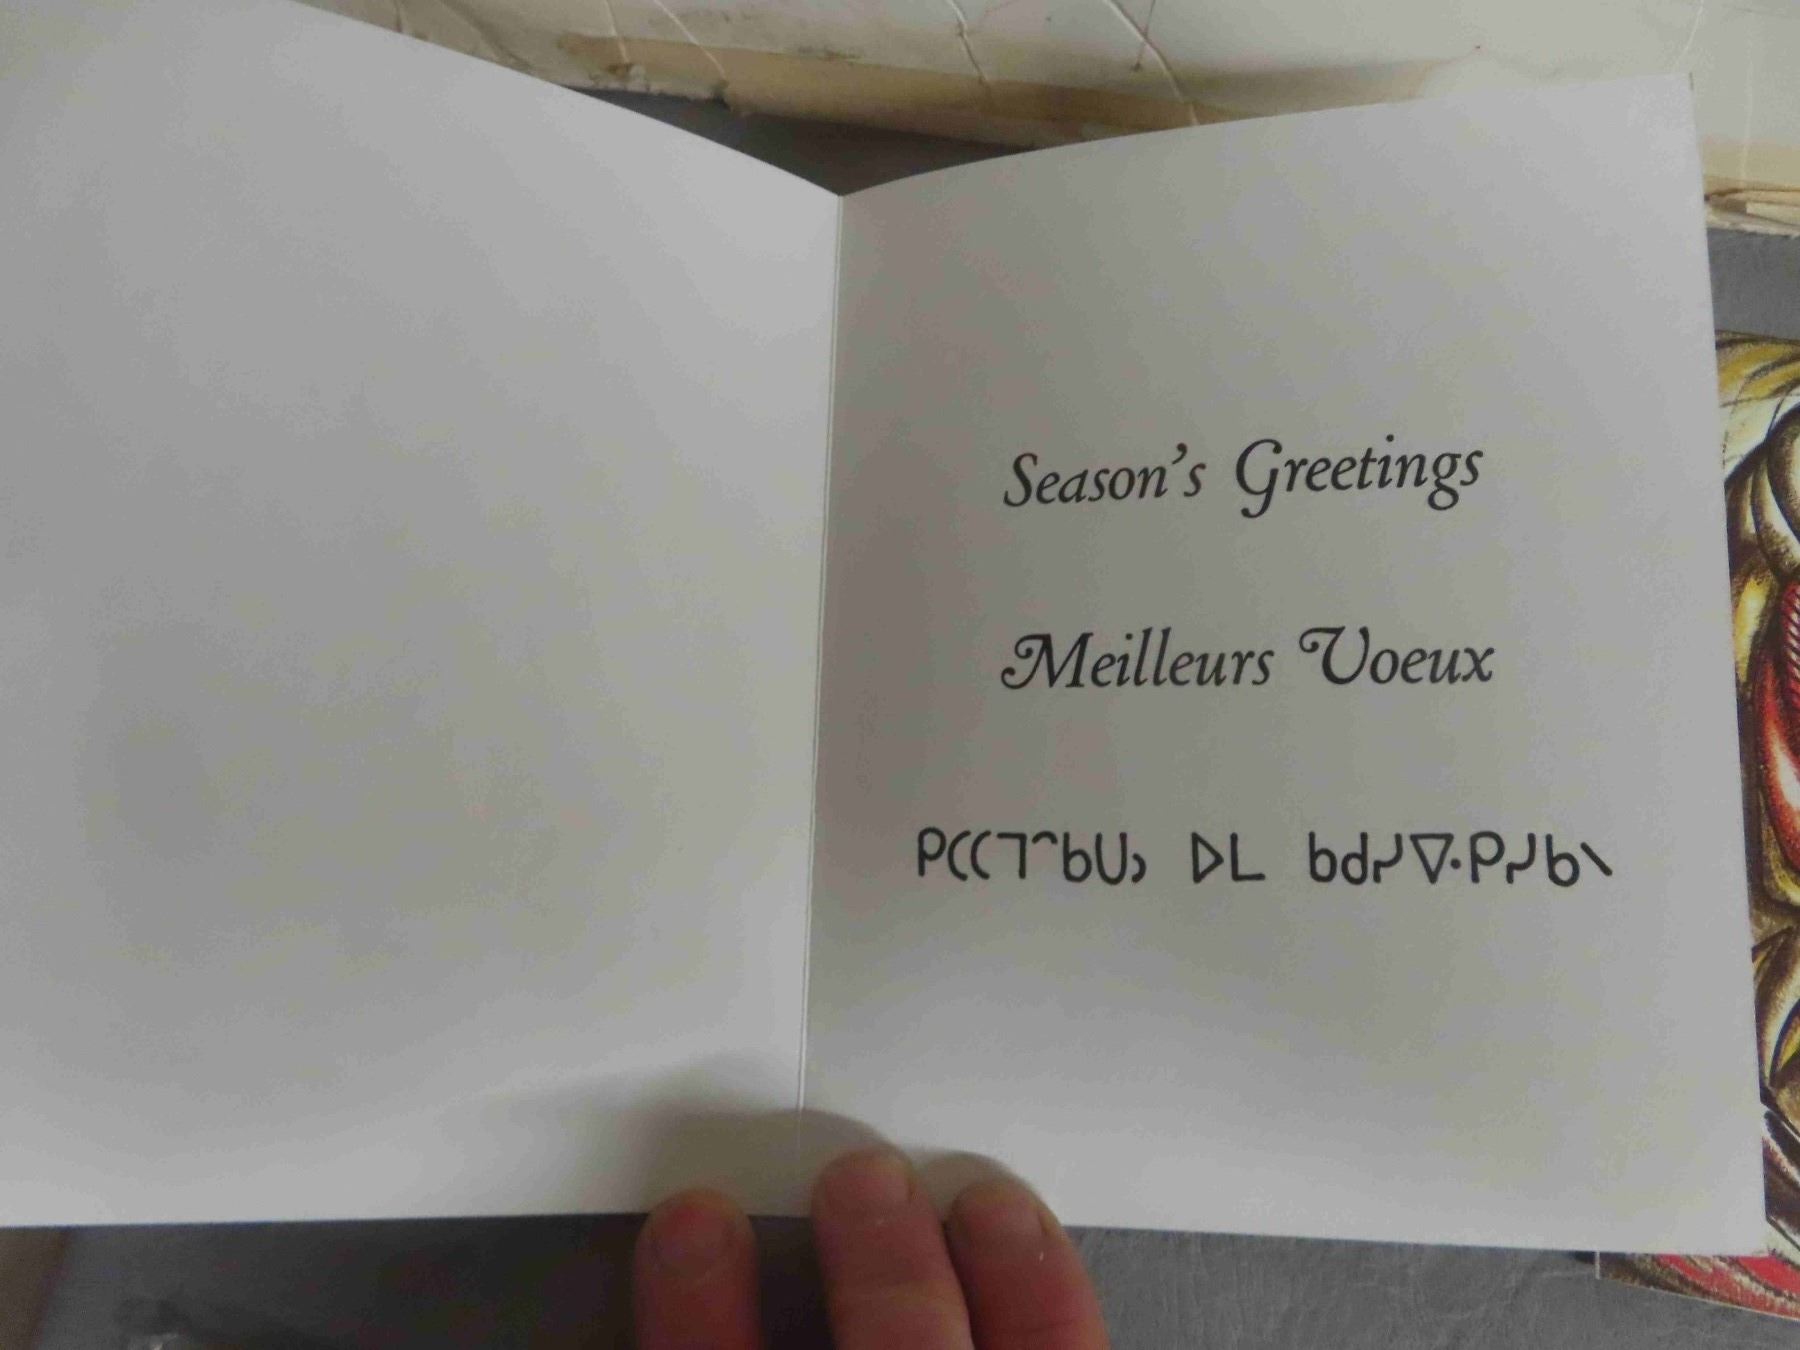 Season's Greetings
Meilleurs Voeux
ᑭᑕᑕᒣᐢᑲᑌᐣ ᐅᒪ ᑲᑯᓯᐍᑭᓯᑲᐠ